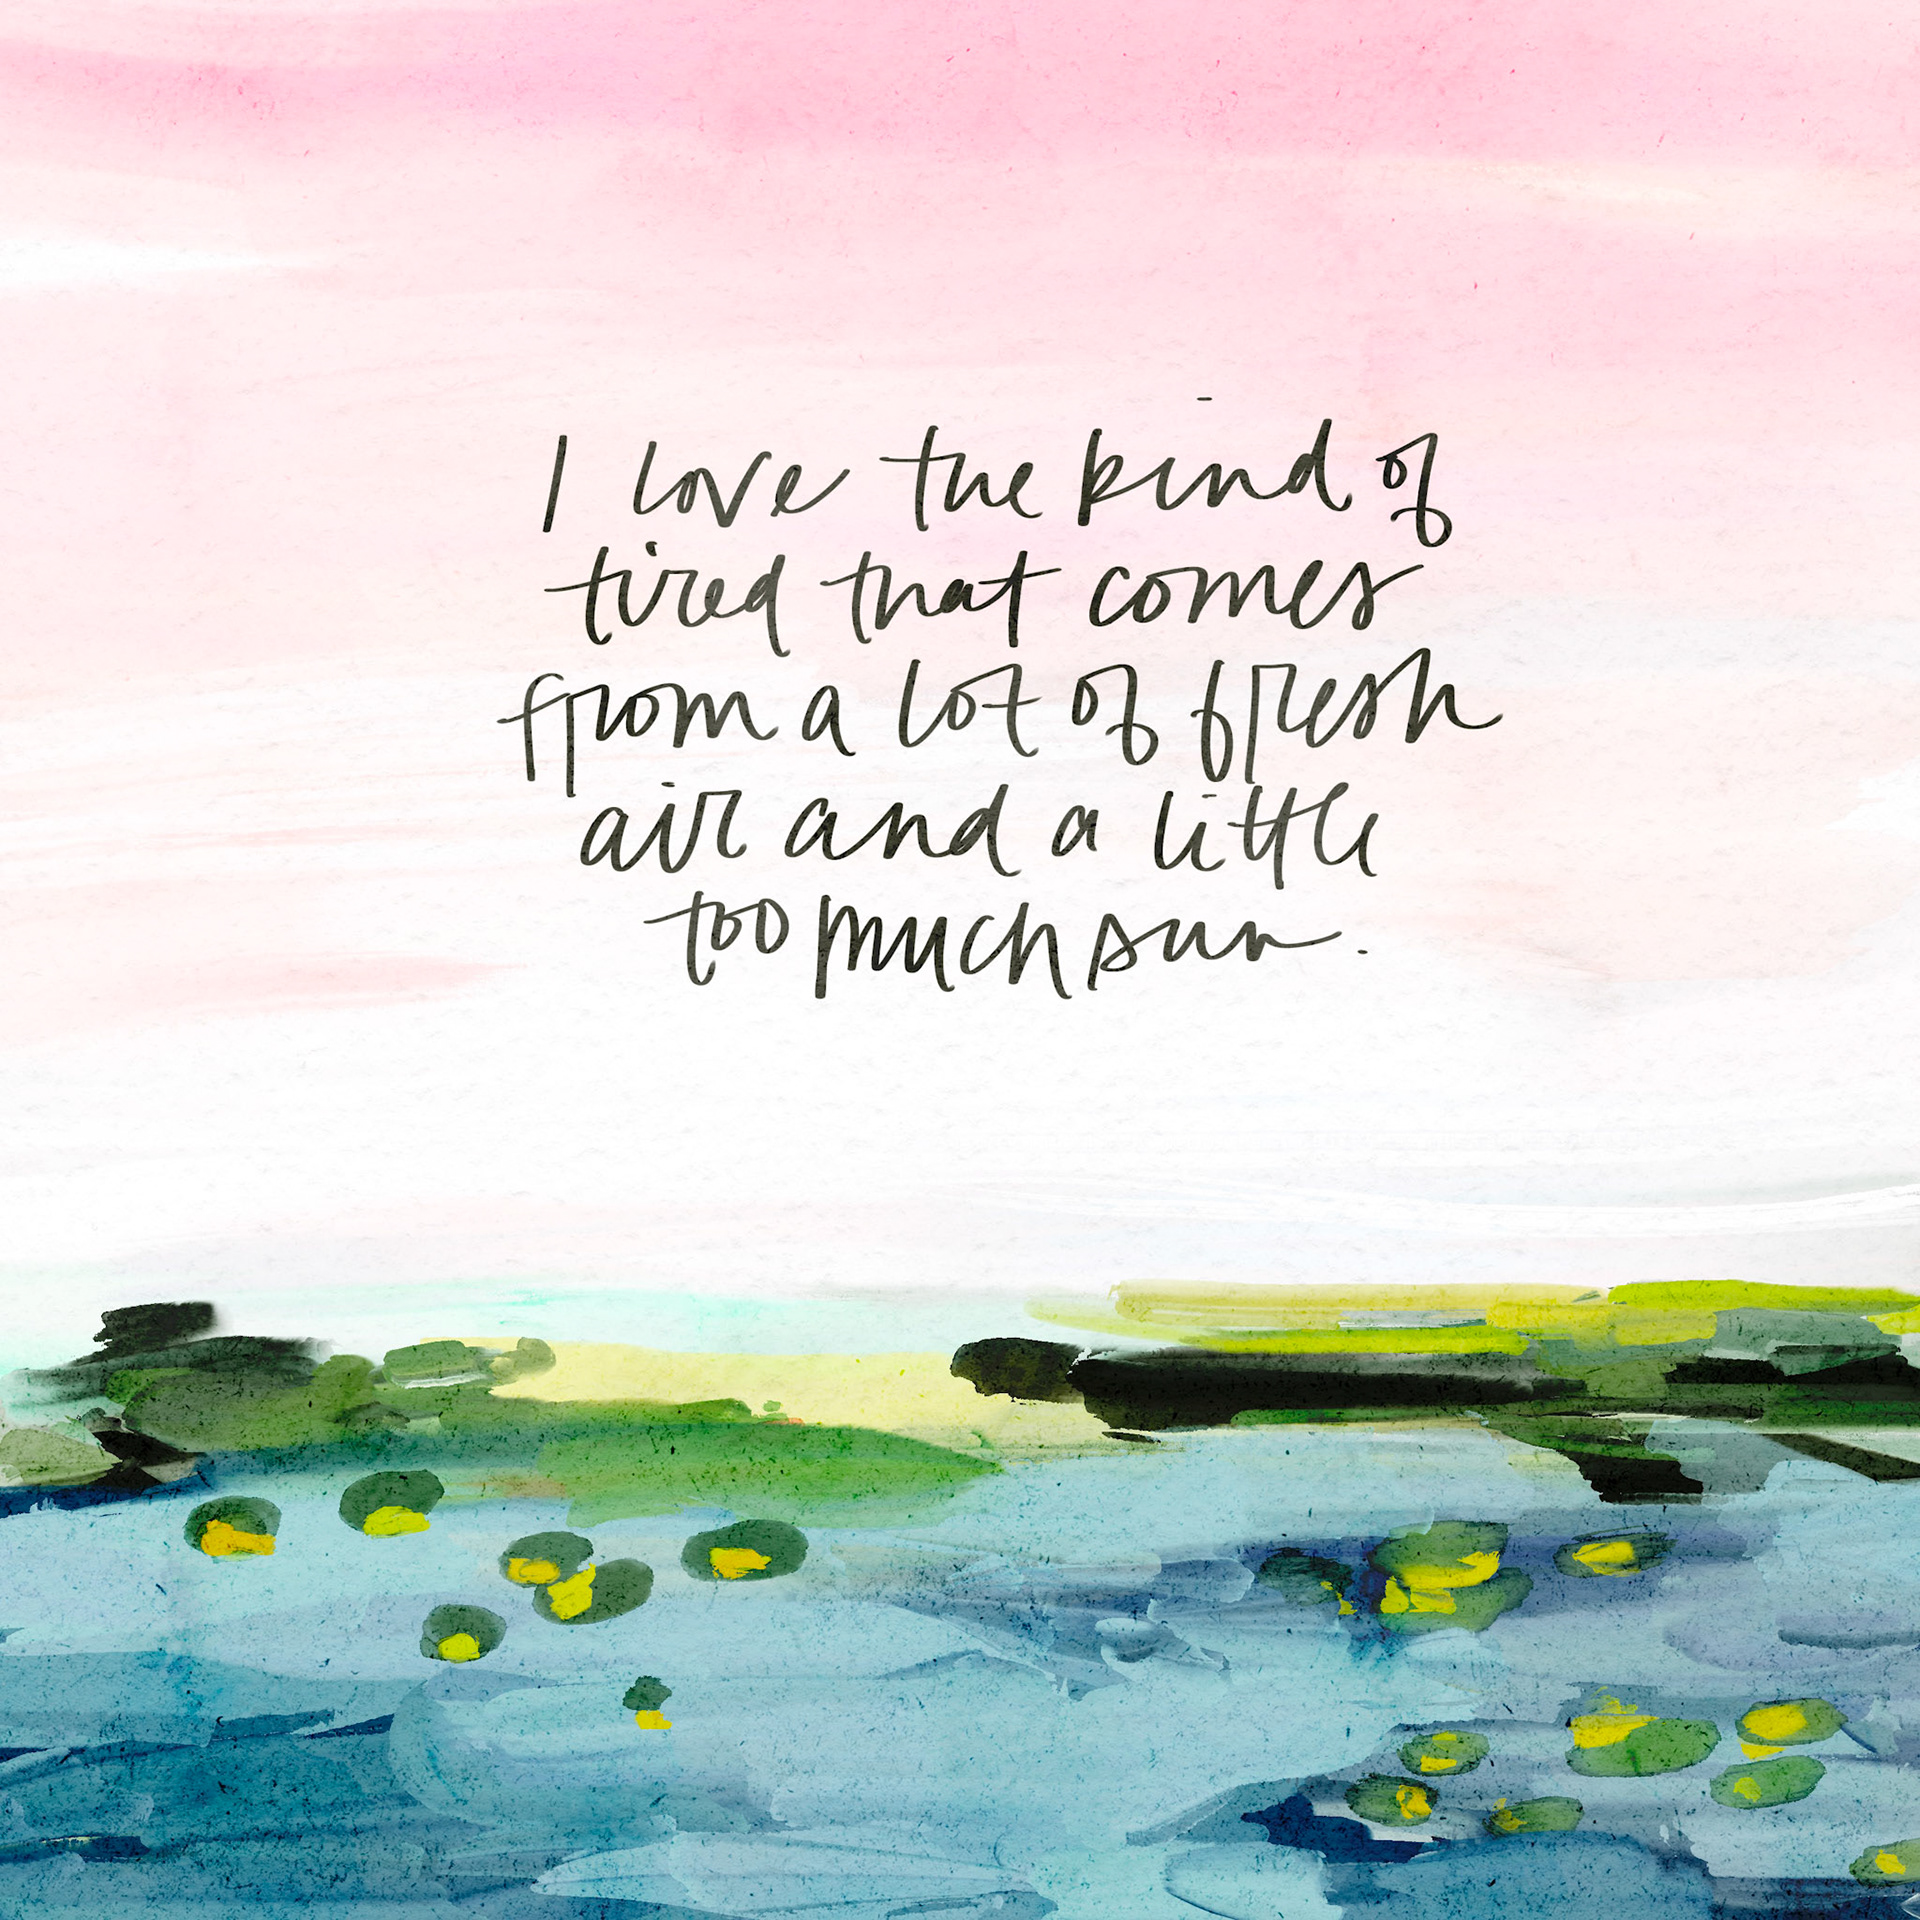 I love the kind of
tired that comes
from a lot of fresh
air and a little
too much sun.